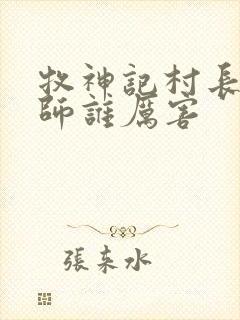 牧神記村長
師誰厲害
張東水